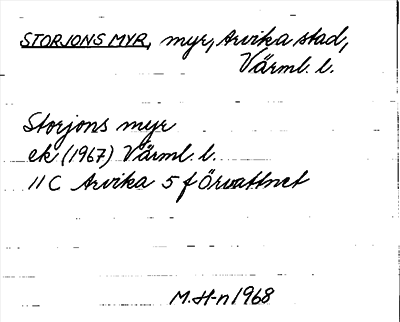 STORJONS MYR, myr, Arvika stad,
Värml. l.
Storjons myr
ek (1967) Värml. l.
11 C Arvika 5 f Örvattnet
M. H-n 1968